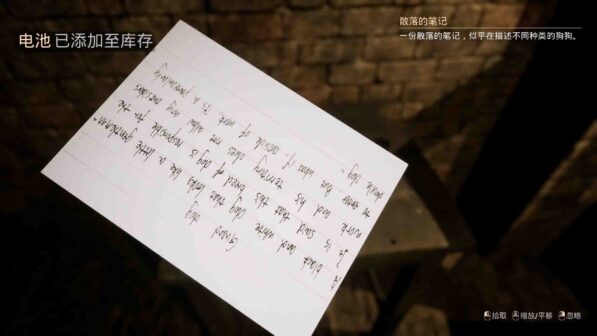 电池 已添加至库存
散落的笔记
一份散落的笔记，似乎在描述不同种类的狗狗。
Guard dog
A black and white dog that looks like a little gentleman.
It is said that this breed of dog is responsible for the
and his territory does not allow any outsiders
to enter. But outside of work it's a particularly
docile dog.
拾取
缩放/平移
忽略